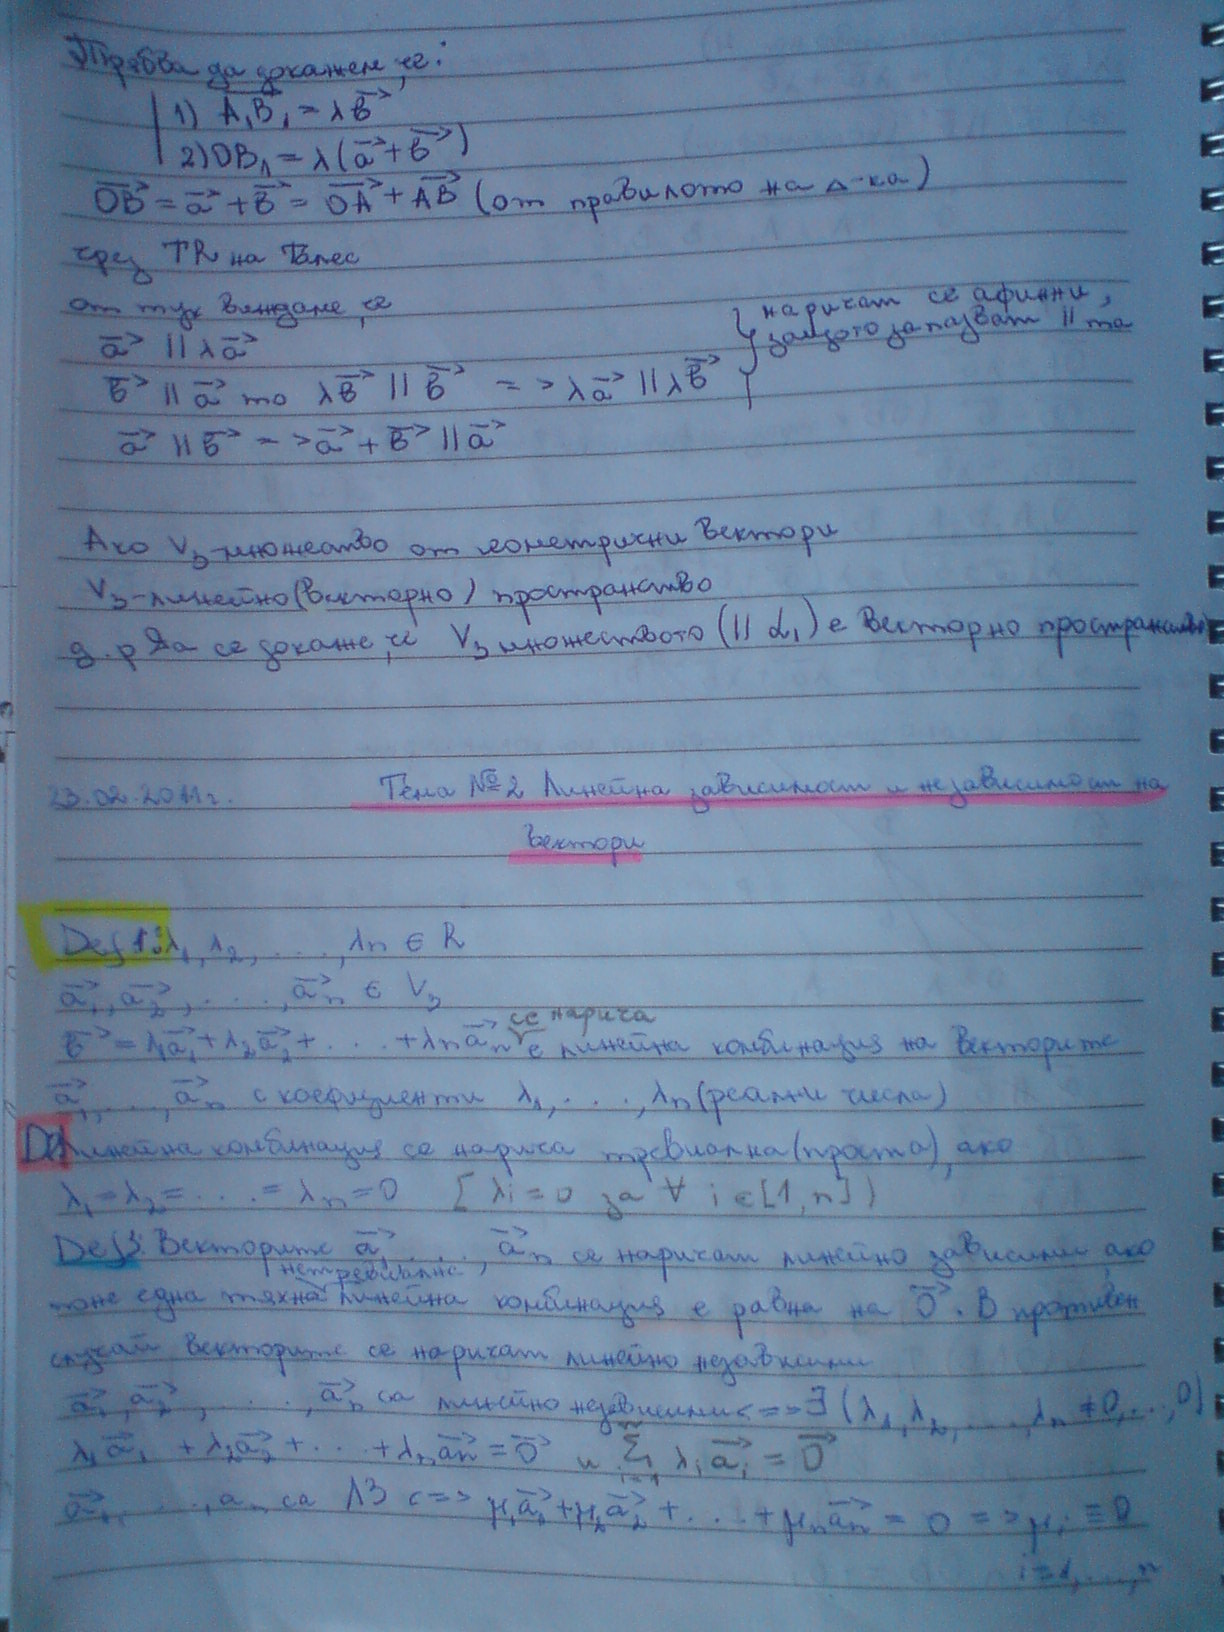 Трябва да докажем, че:
1) A₁B₁ = λb⃗
2) OB₁ = λ(a⃗ + b⃗)
OB⃗ = a⃗ + b⃗ = OA⃗ + AB⃗ (от правилото на Δ-ка)
чрез TR на Талес
от тук виждаме, че
наричат се афинни,
защото запазват || та
a⃗ || λa⃗
b⃗ || a⃗ то λb⃗ || b⃗ => λa⃗ || λb⃗
a⃗ || b⃗ => a⃗ + b⃗ || a⃗
Ако V₃-множество от геометрични вектори
V₃-линейно (векторно) пространство
д.р Да се докаже, че V₃ множеството (|| α₁) е векторно пространство
23.02.2011г. Тема №2 Линейна зависимост и независимост на
вектори
Def 1: λ₁, λ₂, ...., λn ∈ R
a⃗₁, a⃗₂, ...., a⃗n ∈ V₃
се нарича
b⃗ = λ₁a⃗₁ + λ₂a⃗₂ + ... + λna⃗n е линейна комбинация на векторите
a⃗₁, ..., a⃗n с коефициенти λ₁, ..., λn (реални числа)
Def линейна комбинация се нарича тревиална (проста), ако
λ₁ = λ₂ = .... = λn = 0 [λi = 0 за ∀ i ∈ [1, n])
Def 3: Векторите a⃗₁ ..., a⃗n се наричат линейно зависими ако
нетревиална
поне една тяхна линейна комбинация е равна на O⃗. В противен
случай векторите се наричат линейно независими
a⃗₁, a⃗₂, ...., a⃗n са линейно независими <=> ∃ (λ₁, λ₂, ...., λn ≠ 0, ..., 0)
λ₁a⃗₁ + λ₂a⃗₂ + ... + λna⃗n = O⃗ и Σ λia⃗i = O⃗
a⃗₁, ...., an са ЛЗ <=> μ₁a⃗₁ + μ₂a⃗₂ + ... + μna⃗n = 0 => μi = 0
i = 1, ...., n